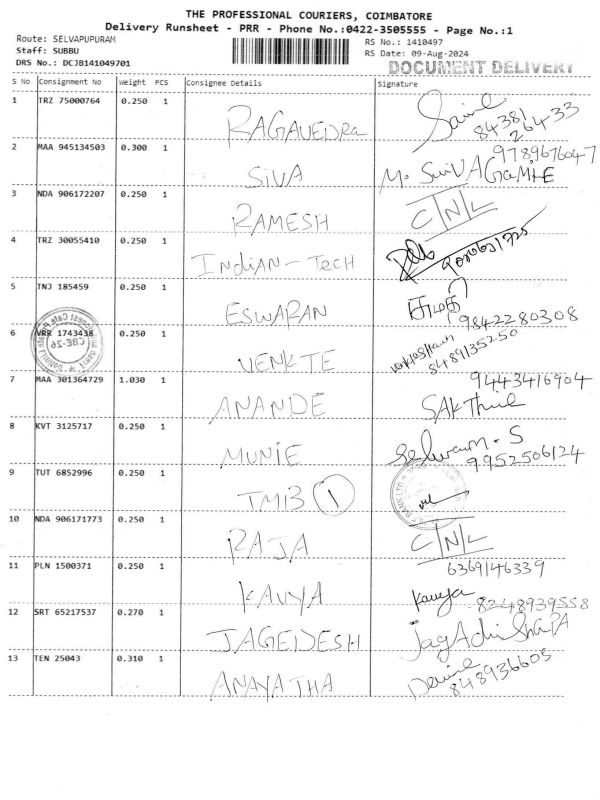 THE PROFESSIONAL COURIERS, COIMBATORE
Delivery Runsheet - PRR - Phone No.:0422-3505555 - Page No.:1
Route: SELVAPUPURAM
Staff: SUBBU
DRS No.: DCJB141049701
RS No.: 1410497
RS Date: 09-Aug-2024
DOCUMENT DELIVERY
S No Consignment No Weight PCS Consignee Details Signature
1 TRZ 75000764 0.250 1 RAGAVEDRA
84381
26433
2 MAA 945134503 0.300 1 SIVA
9789676047
M. SivAGaMiE
3 NDA 906172207 0.250 1 RAMESH C/N/L
4 TRZ 30055410 0.250 1 INDIAN-TECH
5 TNJ 185459 0.250 1 ESWARAN சுமதி
9842280308
6 VRR 1743438 0.250 1 VENKTE
8489135250
7 MAA 301364729 1.030 1 ANANDE
9443416904
SAKThivel
8 KVT 3125717 0.250 1 MUNIE Selvaam-S
9952506124
9 TUT 6852996 0.250 1 TMB 1
10 NDA 906171773 0.250 1 RAJA C/N/L
11 PLN 1500371 0.250 1 KAVYA
6369146339
Kavya
12 SRT 65217537 0.270 1 JAGEDESH
8248939558
13 TEN 25043 0.310 1 ANAYATHA
848936605